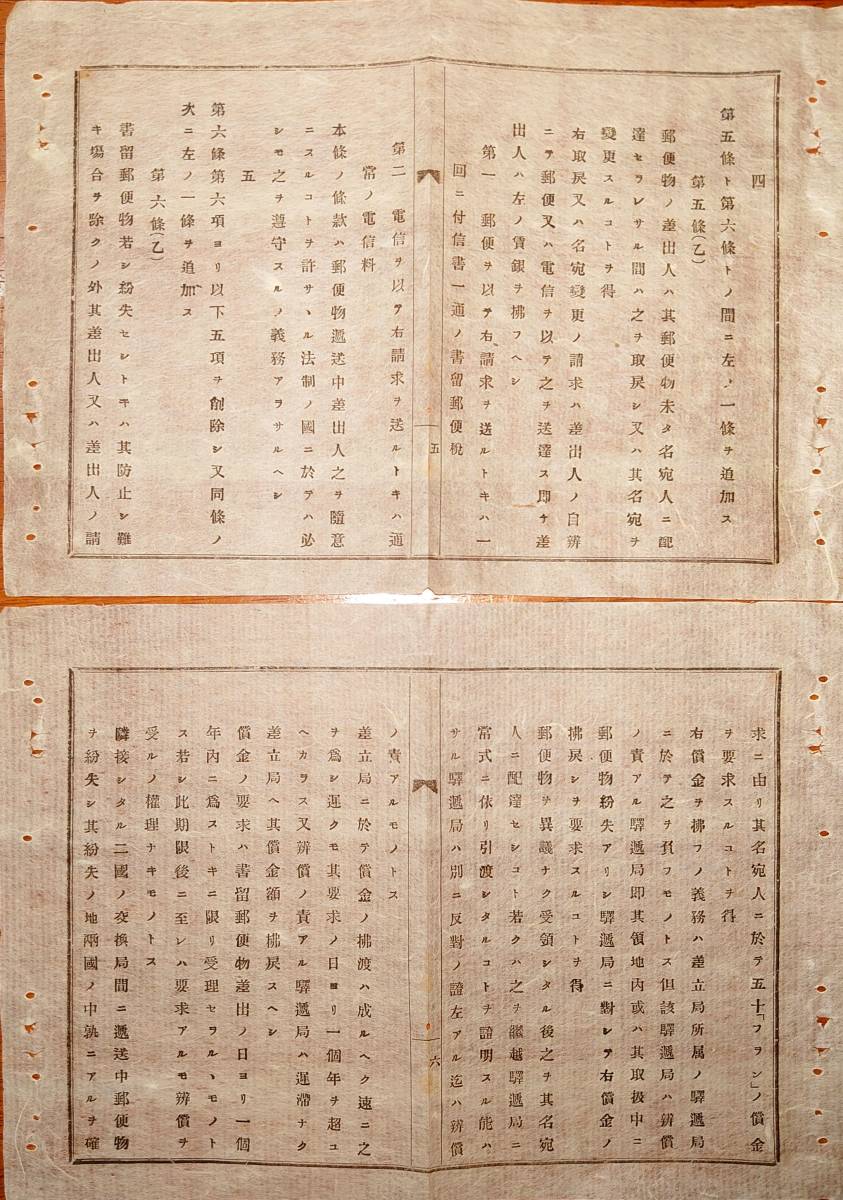 四
第五條ト第六條トノ間ニ左ノ一條ヲ追加ス
第五條(乙)
郵便物ノ差出人ハ其郵便物未タ名宛人ニ配
達セラレサル間ハ之ヲ取戻シ又ハ其名宛ヲ
變更スルコトヲ得
右取戻又ハ名宛變更ノ請求ハ差出人ノ自辨
ニテ郵便又ハ電信ヲ以テ之ヲ送達ス即チ差
出人ハ左ノ賃銀ヲ拂フヘシ
第一 郵便ヲ以テ右請求ヲ送ルトキハ一
回ニ付信書一通ノ書留郵便税
五
第二 電信ヲ以テ右請求ヲ送ルトキハ通
常ノ電信料
本條ノ條款ハ郵便物遞送中差出人之ヲ隨意
ニスルコトヲ許サヽル法制ノ國ニ於テハ必
シモ之ヲ遵守スルノ義務アラサルヘシ
五
第六條第六項ヨリ以下五項ヲ削除シ又同條ノ
次ニ左ノ一條ヲ追加ス
第六條(乙)
書留郵便物若シ紛失セシトキハ其防止シ難
キ場合ヲ除クノ外其差出人又ハ差出人ノ請
求ニ由リ其名宛人ニ於テ五十「フラン」ノ償金
ヲ要求スルコトヲ得
右償金ヲ拂フノ義務ハ差立局所属ノ驛遞局
ニ於テ之ヲ負フモノトス但該驛遞局ハ辨償
ノ責アル驛遞局即其領地内或ハ其取扱中ニ
郵便物紛失アリシ驛遞局ニ對シテ右償金ノ
拂戻シヲ要求スルコトヲ得
郵便物ヲ異議ナク受領シタル後之ヲ其名宛
人ニ配達セシコト若クハ之ヲ繼越驛遞局ニ
當式ニ依リ引渡シタルコトヲ證明スル能ハ
サル驛遞局ハ別ニ反對ノ證左アル迄ハ辨償
六
ノ責アルモノトス
差立局ニ於テ償金ノ拂渡ハ成ルヘク速ニ之
ヲ爲シ遲クモ其要求ノ日ヨリ一個年ヲ超ユ
ヘカラス又辨償ノ責アル驛遞局ハ遲滯ナク
差立局ヘ其償金額ヲ拂戻スヘシ
償金ノ要求ハ書留郵便物差出ノ日ヨリ一個
年内ニ爲ストキニ限リ受理セラルヽモノト
ス若シ此期限後ニ至レハ要求アルモ辨償ヲ
受ルノ權理ナキモノトス
隣接シタル二國ノ交換局間ニ遞送中郵便物
ヲ紛失シ其紛失ノ地兩國ノ中孰ニアルヲ確